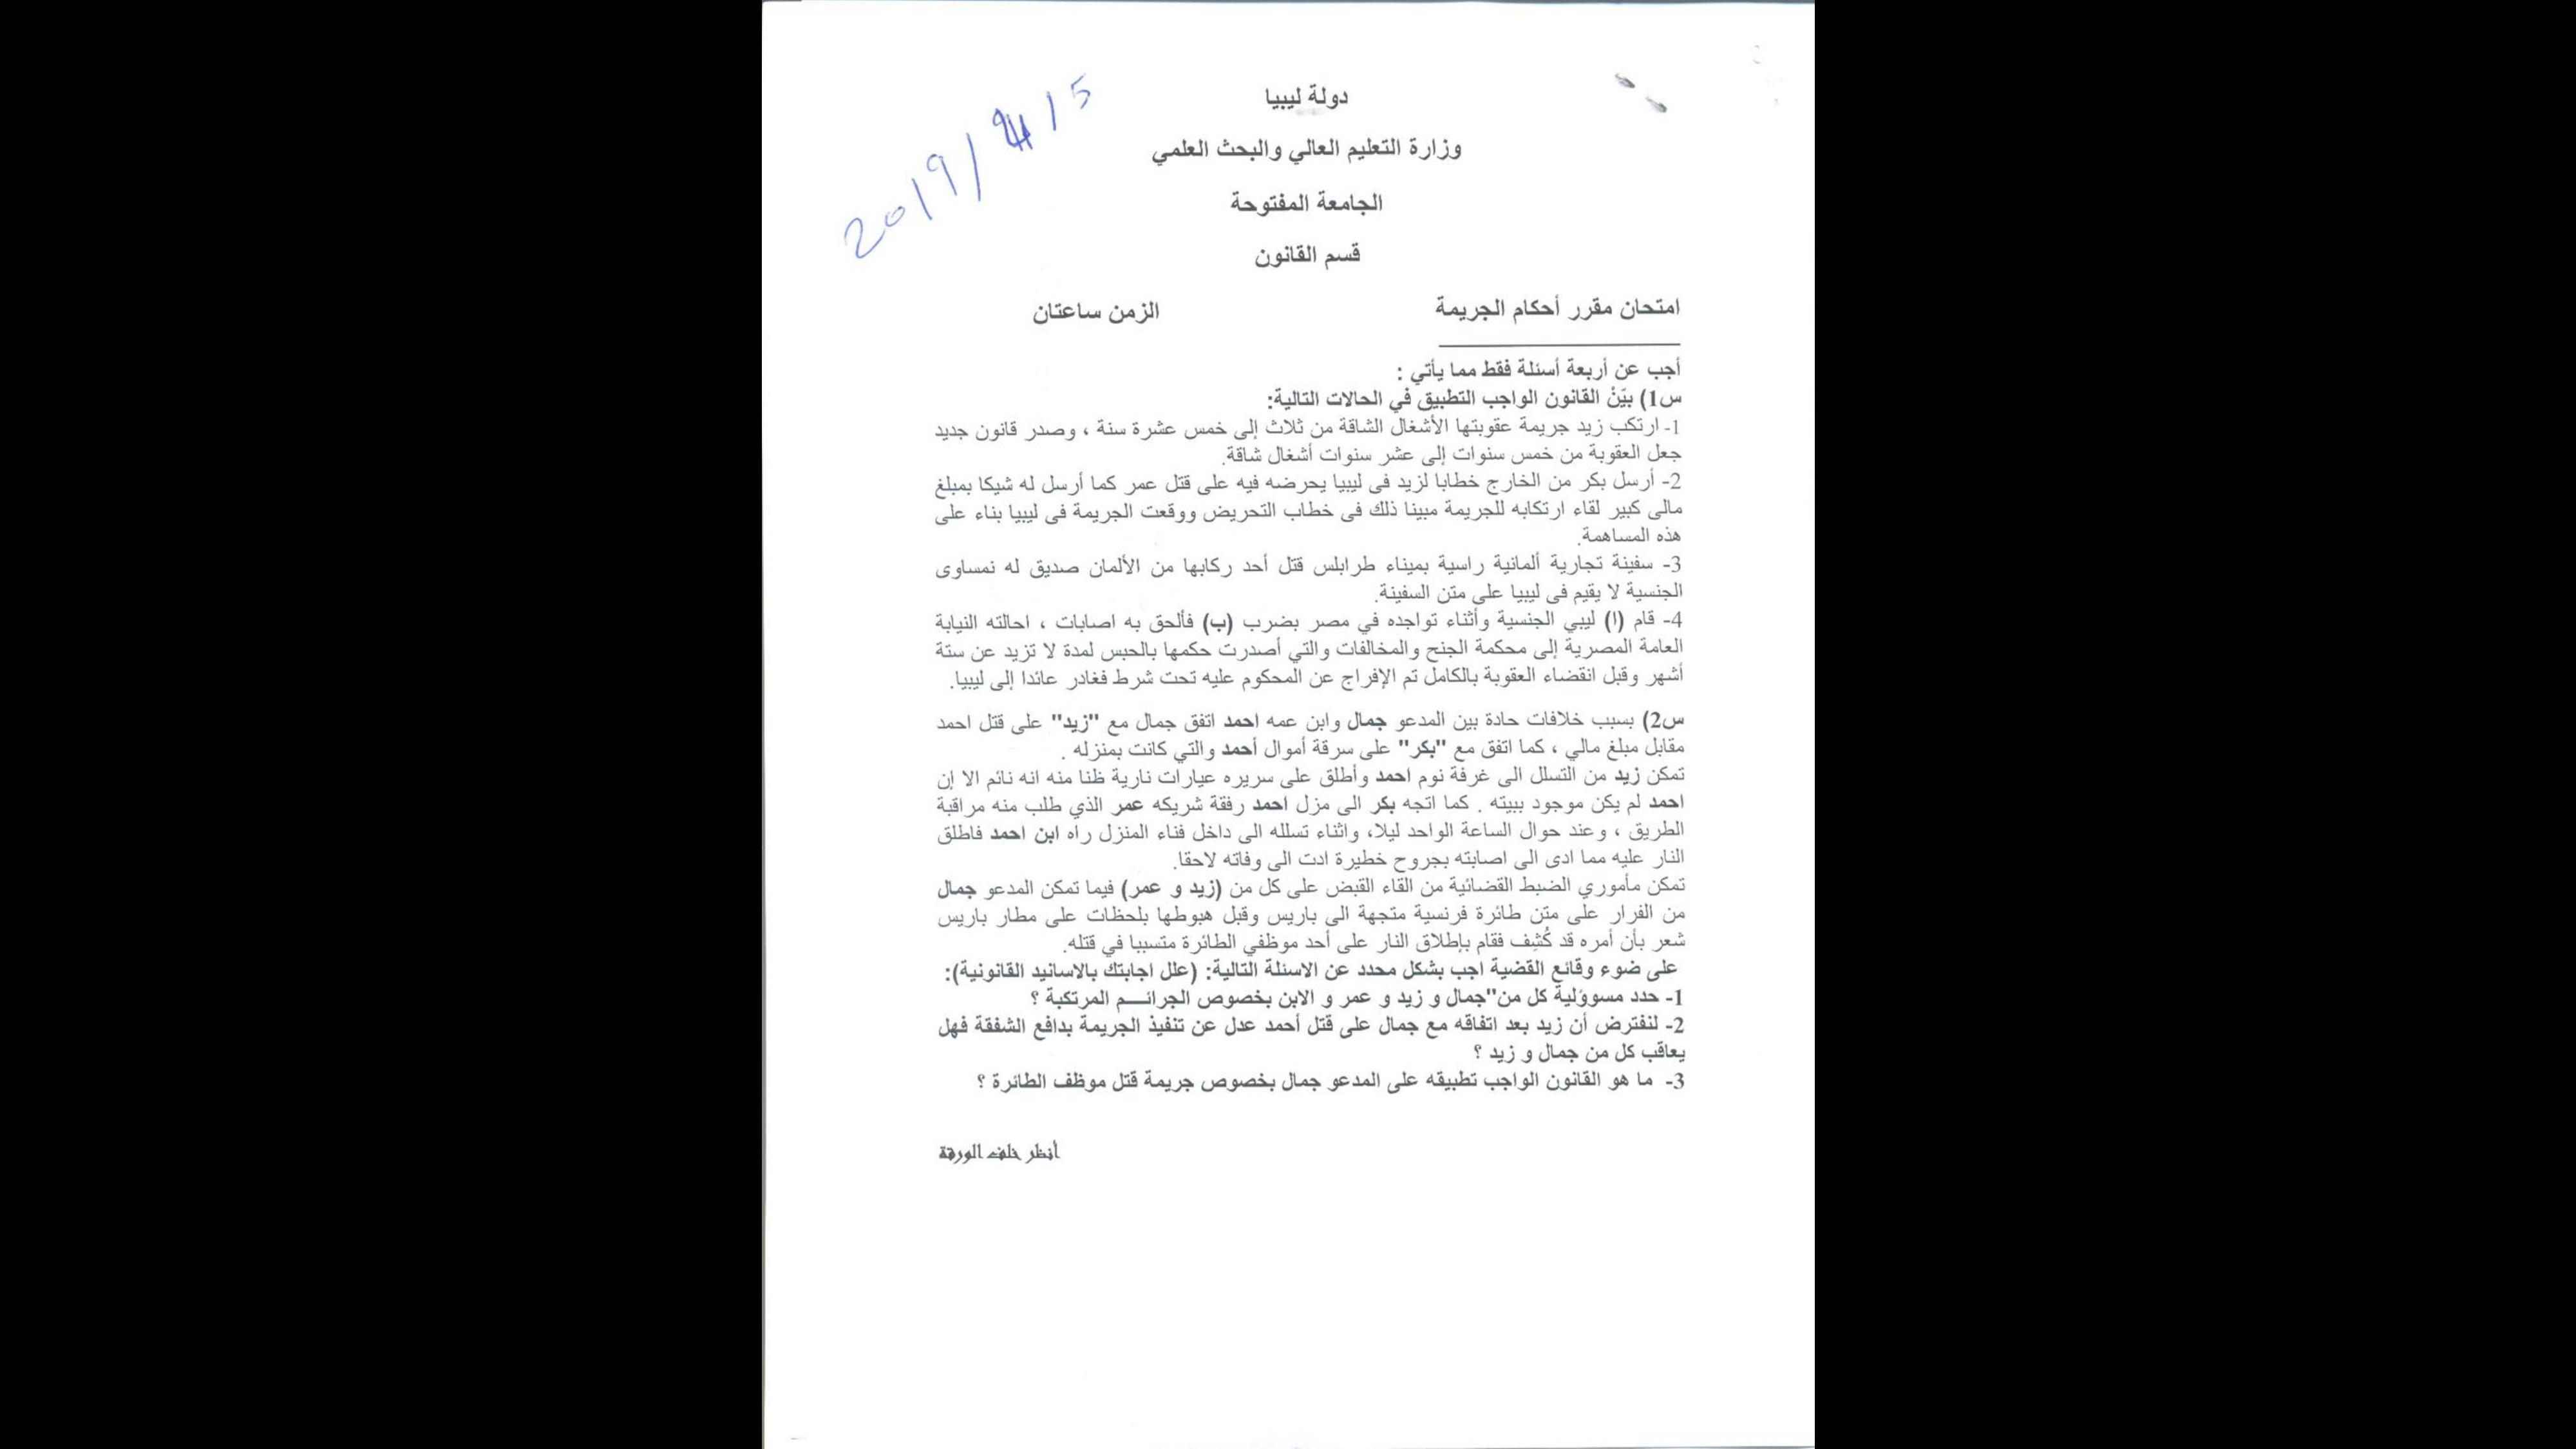 دولة ليبيا
وزارة التعليم العالي والبحث العلمي
الجامعة المفتوحة
قسم القانون
امتحان مقرر أحكام الجريمة الزمن ساعتان
أجب عن أربعة أسئلة فقط مما يأتي :
س1) بيّنْ القانون الواجب التطبيق في الحالات التالية:
1- ارتكب زيد جريمة عقوبتها الأشغال الشاقة من ثلاث إلى خمس عشرة سنة ، وصدر قانون جديد
جعل العقوبة من خمس سنوات إلى عشر سنوات أشغال شاقة.
2- أرسل بكر من الخارج خطابا لزيد فى ليبيا يحرضه فيه على قتل عمر كما أرسل له شيكا بمبلغ
مالى كبير لقاء ارتكابه للجريمة مبينا ذلك فى خطاب التحريض ووقعت الجريمة فى ليبيا بناء على
هذه المساهمة.
3- سفينة تجارية ألمانية راسية بميناء طرابلس قتل أحد ركابها من الألمان صديق له نمساوى
الجنسية لا يقيم فى ليبيا على متن السفينة.
4- قام (ا) ليبي الجنسية وأثناء تواجده في مصر بضرب (ب) فألحق به اصابات ، احالته النيابة
العامة المصرية إلى محكمة الجنح والمخالفات والتي أصدرت حكمها بالحبس لمدة لا تزيد عن ستة
أشهر وقبل انقضاء العقوبة بالكامل تم الإفراج عن المحكوم عليه تحت شرط فغادر عائدا إلى ليبيا.
س2) بسبب خلافات حادة بين المدعو جمال وابن عمه احمد اتفق جمال مع "زيد" على قتل احمد
مقابل مبلغ مالي ، كما اتفق مع "بكر" على سرقة أموال أحمد والتي كانت بمنزله .
تمكن زيد من التسلل الى غرفة نوم احمد وأطلق على سريره عيارات نارية ظنا منه انه نائم الا إن
احمد لم يكن موجود ببيته . كما اتجه بكر الى مزل احمد رفقة شريكه عمر الذي طلب منه مراقبة
الطريق ، وعند حوال الساعة الواحد ليلا، واثناء تسلله الى داخل فناء المنزل راه ابن احمد فاطلق
النار عليه مما ادى الى اصابته بجروح خطيرة ادت الى وفاته لاحقا.
تمكن مأموري الضبط القضائية من القاء القبض على كل من (زيد و عمر) فيما تمكن المدعو جمال
من الفرار على متن طائرة فرنسية متجهة الى باريس وقبل هبوطها بلحظات على مطار باريس
شعر بأن أمره قد كُشِف فقام بإطلاق النار على أحد موظفي الطائرة متسببا في قتله.
على ضوء وقائع القضية اجب بشكل محدد عن الاسئلة التالية: (علل اجابتك بالاسانيد القانونية):
1- حدد مسوؤلية كل من"جمال و زيد و عمر و الابن بخصوص الجرائـــم المرتكبة ؟
2- لنفترض أن زيد بعد اتفاقه مع جمال على قتل أحمد عدل عن تنفيذ الجريمة بدافع الشفقة فهل
يعاقب كل من جمال و زيد ؟
3- ما هو القانون الواجب تطبيقه على المدعو جمال بخصوص جريمة قتل موظف الطائرة ؟
أنظر خلف الورقة